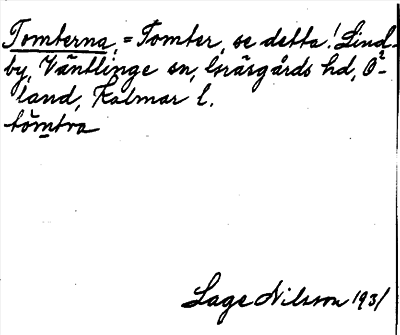 Tomterna, = Tomter, se detta! Lind-
by, Ventlinge sn, Gräsgårds hd, Ö-
land, Kalmar l.
tòm̲tra
Lage Nilsson 1931